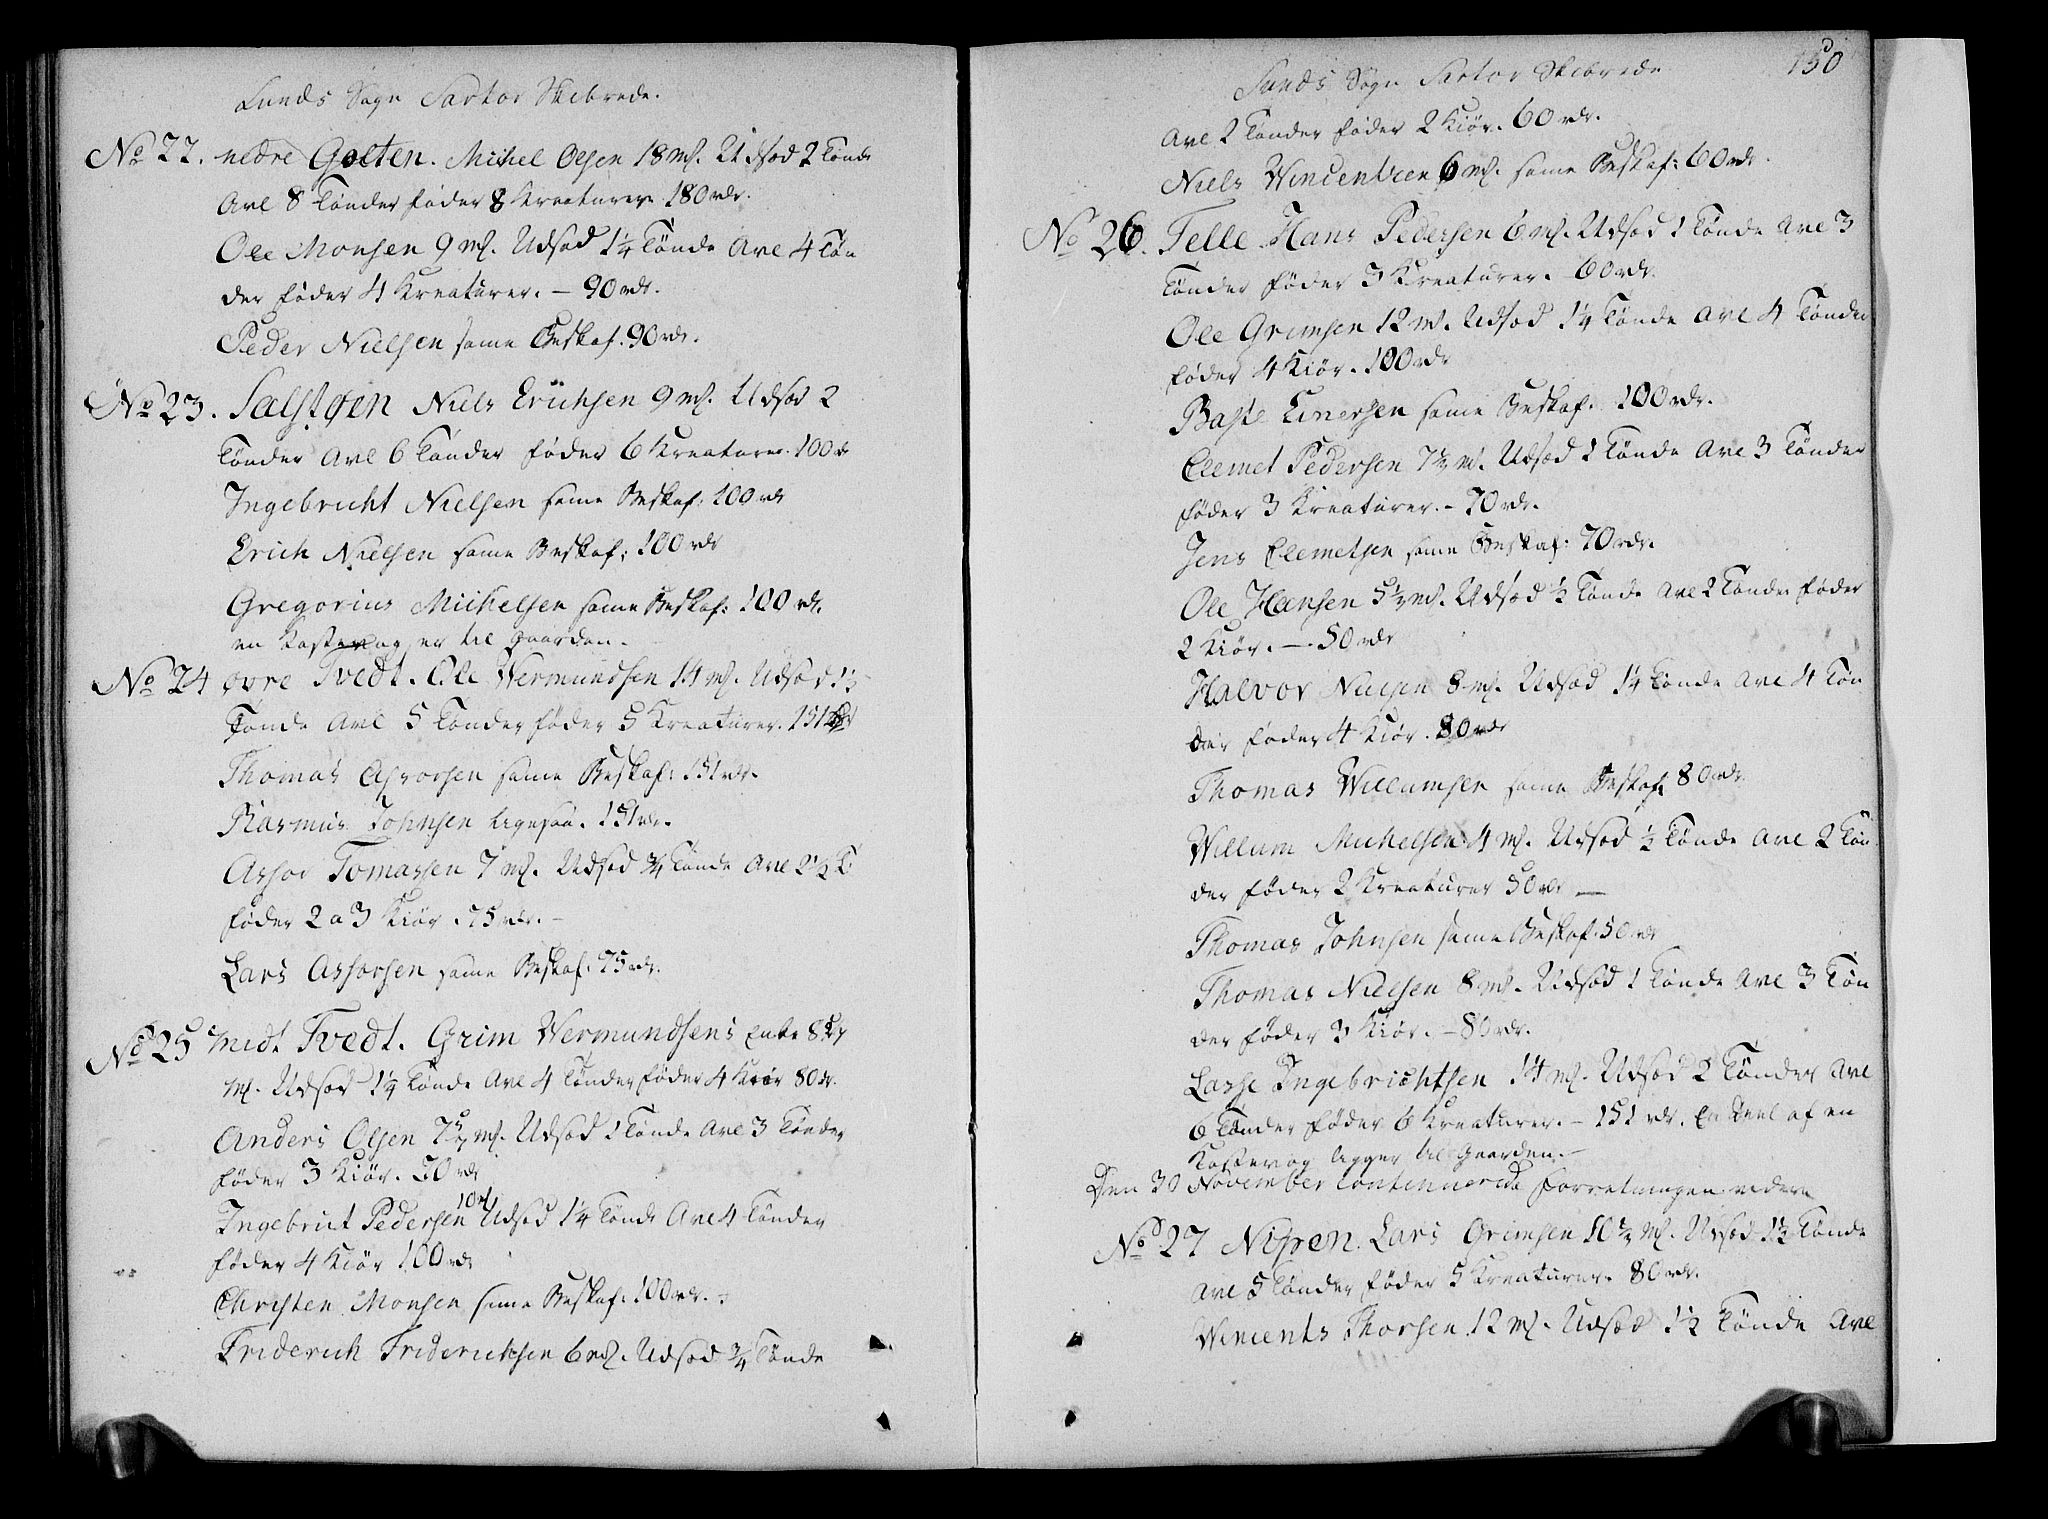 Sunds Sogn Sartor Skibrede.
No 22. nedre Golten. Michel Olsen 18 ml. Udsæd 2 Tønde
Avl 8 Tønder føder 8 Kreaturer 180 rdr.
Ole Monsen 9 ml. Udsæd 1¼ Tønde Avl 4 Tøn
der føder 4 Kreaturer. – 90 rdr.
Peder Nielsen same Beskaf. 90 rdr.
No 23. Salstøen Niels Erichsen 9 ml. Udsæd 2
Tønder Avl 6 Tønder føder 6 Kreaturer. 100 r
Ingebricht Nielsen same Beskaf: 100 rdr
Erich Nielsen same Beskaf: 100 rdr
Gregorius Michelsen same Beskaf: 100 rdr.
en Kastevog er til gaarden.
No 24 øvre Tvedt. Ole Wermundsen 14 ml. Udsæd 1½
Tønde Avl 5 Tønder føder 5 Kreaturer. 151
Thomas Asorsen same Beskaf: 151 rdr.
Rasmus Johnsen ligesaa. 151 rdr.
Assor Tomassen 7 ml. Udsæd ¾ Tønde Avl 2½ T:
føder 2 a 3 Kiør. 75 rdr. –
Lars Assorsen same Beskaf: 75 rdr.
No 25 midt Tvedt. Grim Wermundsens Enke 8
ml. Udsæd 1¼ Tønde Avl 4 Tønder føder 4 Kiør 80 r.
Anders Olsen 7½ ml. Udsæd 1 Tønde Avl 3 Tønder
føder 3 Kiør. 70 rdr
Ingebrict Pedersen 10 ml Udsæd 1¼ Tønde Avl 4 Tønder
føder 4 Kiør 100 rdr
Christen Monsen same Beskaf: 100 rdr. –
Friderich Friderichsen 6 ml. Udsæd ¾ Tønde
150
Sunds Sogn Sartor Skibrede
Avl 2 Tønder føder 2 Kiør. 60 rdr.
Niels Wincentsen 6 ml. same Beskaf: 60 rdr.
No 26. Telle Hans Pedersen 6 ml. Udsæd 1 Tønde Avl 3
Tønder føder 3 Kreaturer. 60 rdr.
Ole Grimsen 12 ml. Udsæd 1¼ Tønde Avl 4 Tønder
føder 4 Kiør. 100 rdr
Baste Einersen same Beskaf. 100 rdr.
Clemet Pedersen 7½ ml. Udsæd 1 Tønde Avl 3 Tønder
føder 3 Kreaturer. – 70 rdr.
Jens Clemetsen same Beskaf: 70 rdr.
Ole Hansen 5½ ml. Udsæd ½ Tønde Avl 2 Tønder føder
2 Kiør. – 50 rdr
Halvor Nielsen 8 ml. Udsæd 1¼ Tønde Avl 4 Tøn
der føder 4 Kiør. 80 rdr
Thomas Willumsen same Beskaf. 80 rdr
Willum Michelsen 4 ml. Udsæd ½ Tønde Avl 2 Tøn
der føder 2 Kreaturer 50 rdr –
Thomas Johnsen same Beskaf. 50 rdr
Thomas Nielsen 8 ml. Udsæd 1 Tønde Avl 3 Tøn
der føder 3 Kiør. – 80 rdr.
Lasse Ingebrichtsen 14 ml. Udsæd 2 Tønder Avl
6 Tønder føder 6 Kreaturer. – 151 rdr. En Deel af en
Kastevog ligger til Gaarden. –
Den 30 November Continuerede Forretningen videre
No 27 Lars Grimsen 10½ ml. Udsæd 1½ Tønde
Avl 5 Tønder føder 5 Kreaturer. 80 rdr.
Wincents Thorsen 12 ml. Udsæd 1½ Tønde Avl